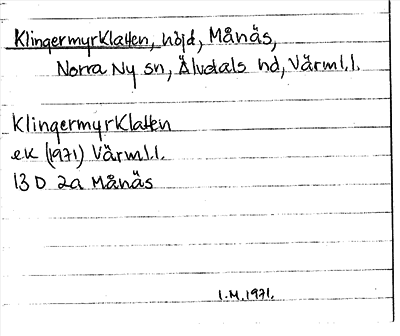 Klingermyrklatten, höjd, Månäs,
Norra Ny sn, Älvdals hd, Värml.l.
Klingermyrklatten
ek (1971) Värml.l.
13 D 2a Månäs
I.M.1971.